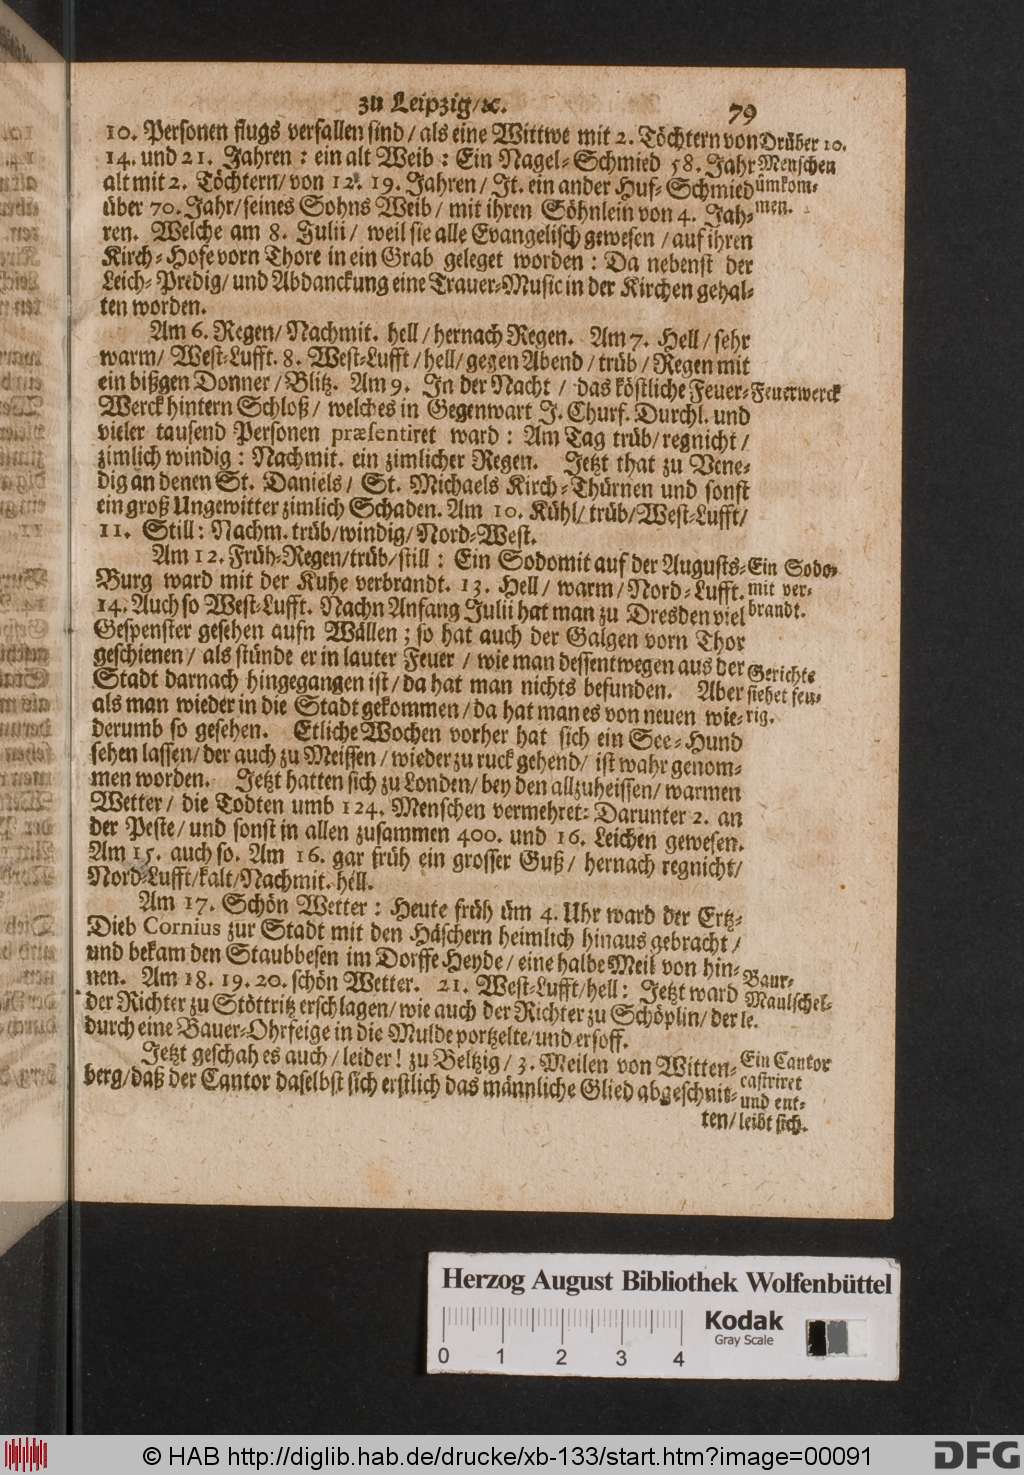 zu Leipzig/ꝛc.
79
10. Personen flugs verfallen sind / als eine Wittwe mit 2. Töchtern von
14. und 21. Jahren : ein alt Weib : Ein Nagel-Schmied 58. Jahr
alt mit 2. Töchtern/ von 12. 19. Jahren / It. ein ander Huf-Schmied
über 70. Jahr/ seines Sohns Weib / mit ihren Söhnlein von 4. Jah-
ren. Welche am 8. Julii / weil sie alle Evangelisch gewesen / auf ihren
Kirch-Hofe vorn Thore in ein Grab geleget worden : Da nebenst der
Leich-Predig/ und Abdanckung eine Trauer-Music in der Kirchen gehal-
ten worden.
Drüber 10.
Menschen
ümkom-
men.
Am 6. Regen/ Nachmit. hell / hernach Regen. Am 7. Hell / sehr
warm/ West-Lufft. 8. West-Lufft / hell/ gegen Abend / trüb / Regen mit
ein bißgen Donner / Blitz. Am 9. In der Nacht / das köstliche Feuer-
Werck hintern Schloß / welches in Gegenwart J. Churf. Durchl. und
vieler tausend Personen præsentiret ward : Am Tag trüb/ regnicht /
zimlich windig : Nachmit. ein zimlicher Regen. Jetzt that zu Vene-
dig an denen St. Daniels / St. Michaels Kirch-Thürnen und sonst
ein groß Ungewitter zimlich Schaden. Am 10. Kühl/ trüb/ West-Lufft/
11. Still : Nachm. trüb/windig/ Nord-West.
Feuerwerck
Am 12. Früh-Regen/trüb/ still : Ein Sodomit auf der Augusts-
Burg ward mit der Kuhe verbrandt. 13. Hell / warm / Nord-Lufft.
14. Auch so West-Lufft. Nachn Anfang Julii hat man zu Dresden viel
Gespenster gesehen aufn Wällen ; so hat auch der Galgen vorn Thor
geschienen / als stünde er in lauter Feuer / wie man dessentwegen aus der
Stadt darnach hingegangen ist / da hat man nichts befunden. Aber
als man wieder in die Stadt gekommen / da hat man es von neuen wie-
derumb so gesehen. Etliche Wochen vorher hat sich ein See-Hund
sehen lassen/ der auch zu Meissen / wieder zu ruck gehend/ ist wahr genom-
men worden. Jetzt hatten sich zu Londen/ bey den allzuheissen/ warmen
Wetter / die Todten umb 124. Menschen vermehret: Darunter 2. an
der Peste / und sonst in allen zusammen 400. und 16. Leichen gewesen.
Am 15. auch so. Am 16. gar früh ein grosser Guß / hernach regnicht/
Nord-Lufft/kalt/Nachmit. hell.
Ein Sodo-
mit ver-
brandt.
Gerichte
siehet feu-
rig.
Am 17. Schön Wetter : Heute früh üm 4. Uhr ward der Ertz-
Dieb Cornius zur Stadt mit den Häschern heimlich hinaus gebracht /
und bekam den Staubbesen im Dorffe Heyde / eine halbe Meil von hin-
nen. Am 18. 19. 20. schön Wetter. 21. West-Lufft/hell : Jetzt ward
der Richter zu Stöttritz erschlagen/ wie auch der Richter zu Schöplin/ der
durch eine Bauer-Ohrfeige in die Mulde portzelte/ und ersoff.
Baur-
Maulschel-
le.
Jetzt geschah es auch / leider ! zu Beltzig / 3. Meilen von Witten-
berg/ daß der Cantor daselbst sich erstlich das männliche Glied abgeschnit-
ten/
Ein Cantor
castriret
und ent-
leibt sich.
Herzog August Bibliothek Wolfenbüttel
Kodak
Gray Scale
0 1 2 3 4
© HAB http://diglib.hab.de/drucke/xb-133/start.htm?image=00091
DFG